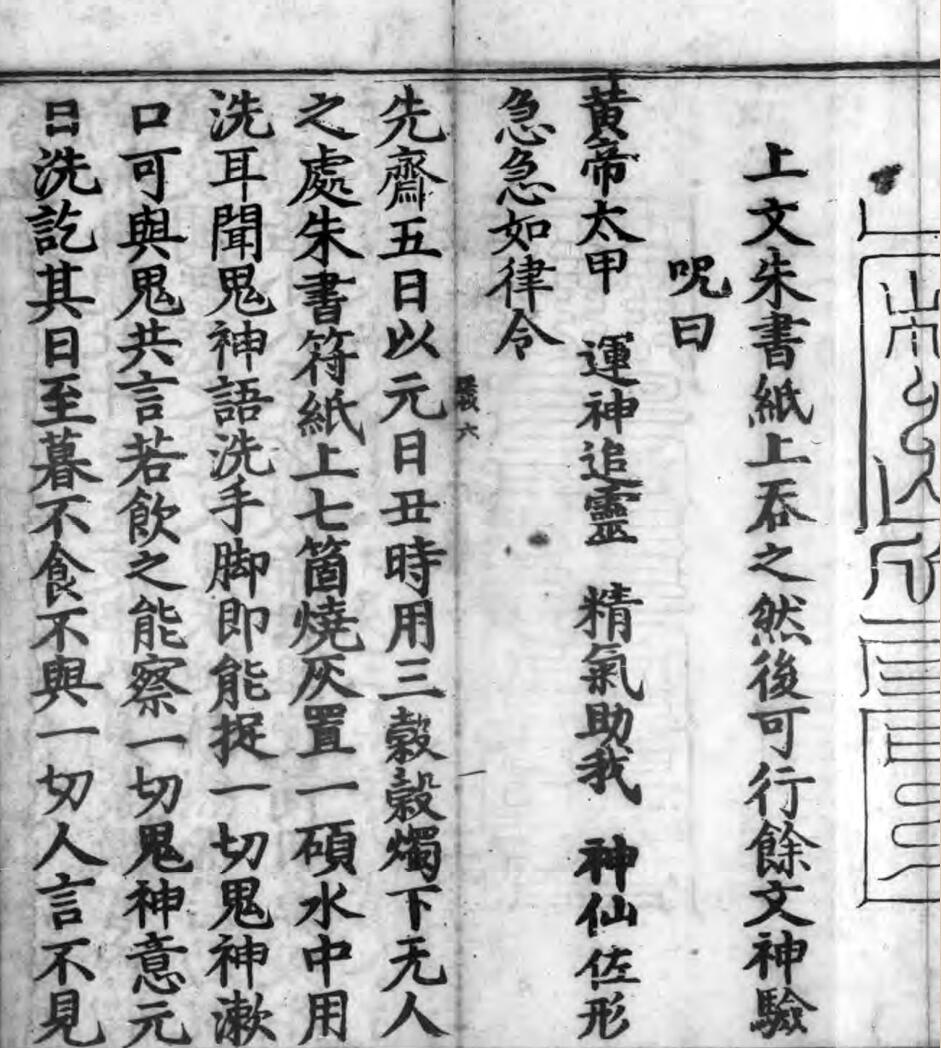 上文朱書紙上吞之然後可行餘文神驗
呪曰
黃帝太甲 運神追靈 精氣助我 神仙佐形
急急如律令
六
先齋五日以元日丑時用三穀穀燭下无人
之處朱書符紙上七箇燒灰置一碩水中用
洗耳聞鬼神語洗手脚即能捉一切鬼神漱
口可與鬼共言若飲之能察一切鬼神意元
日洗訖其日至暮不食不與一切人言不見